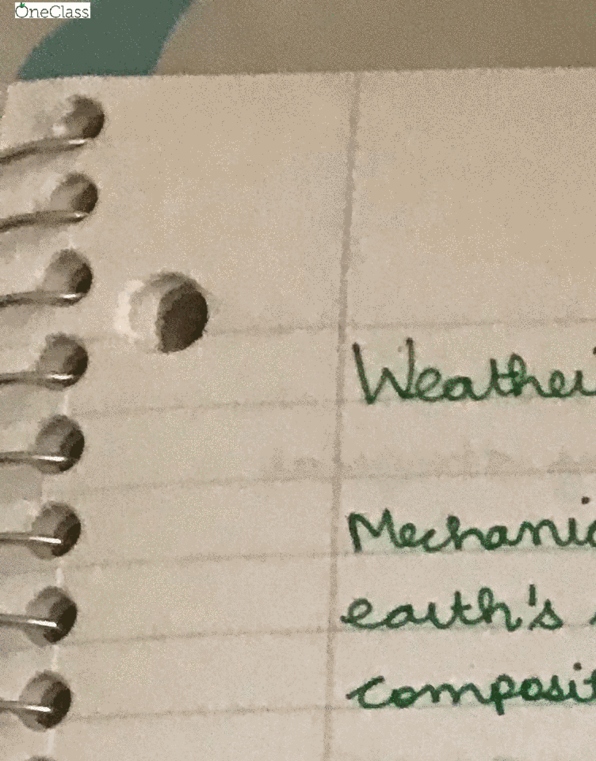 OneClass
Weatheri
Mechanic
earth's
composit